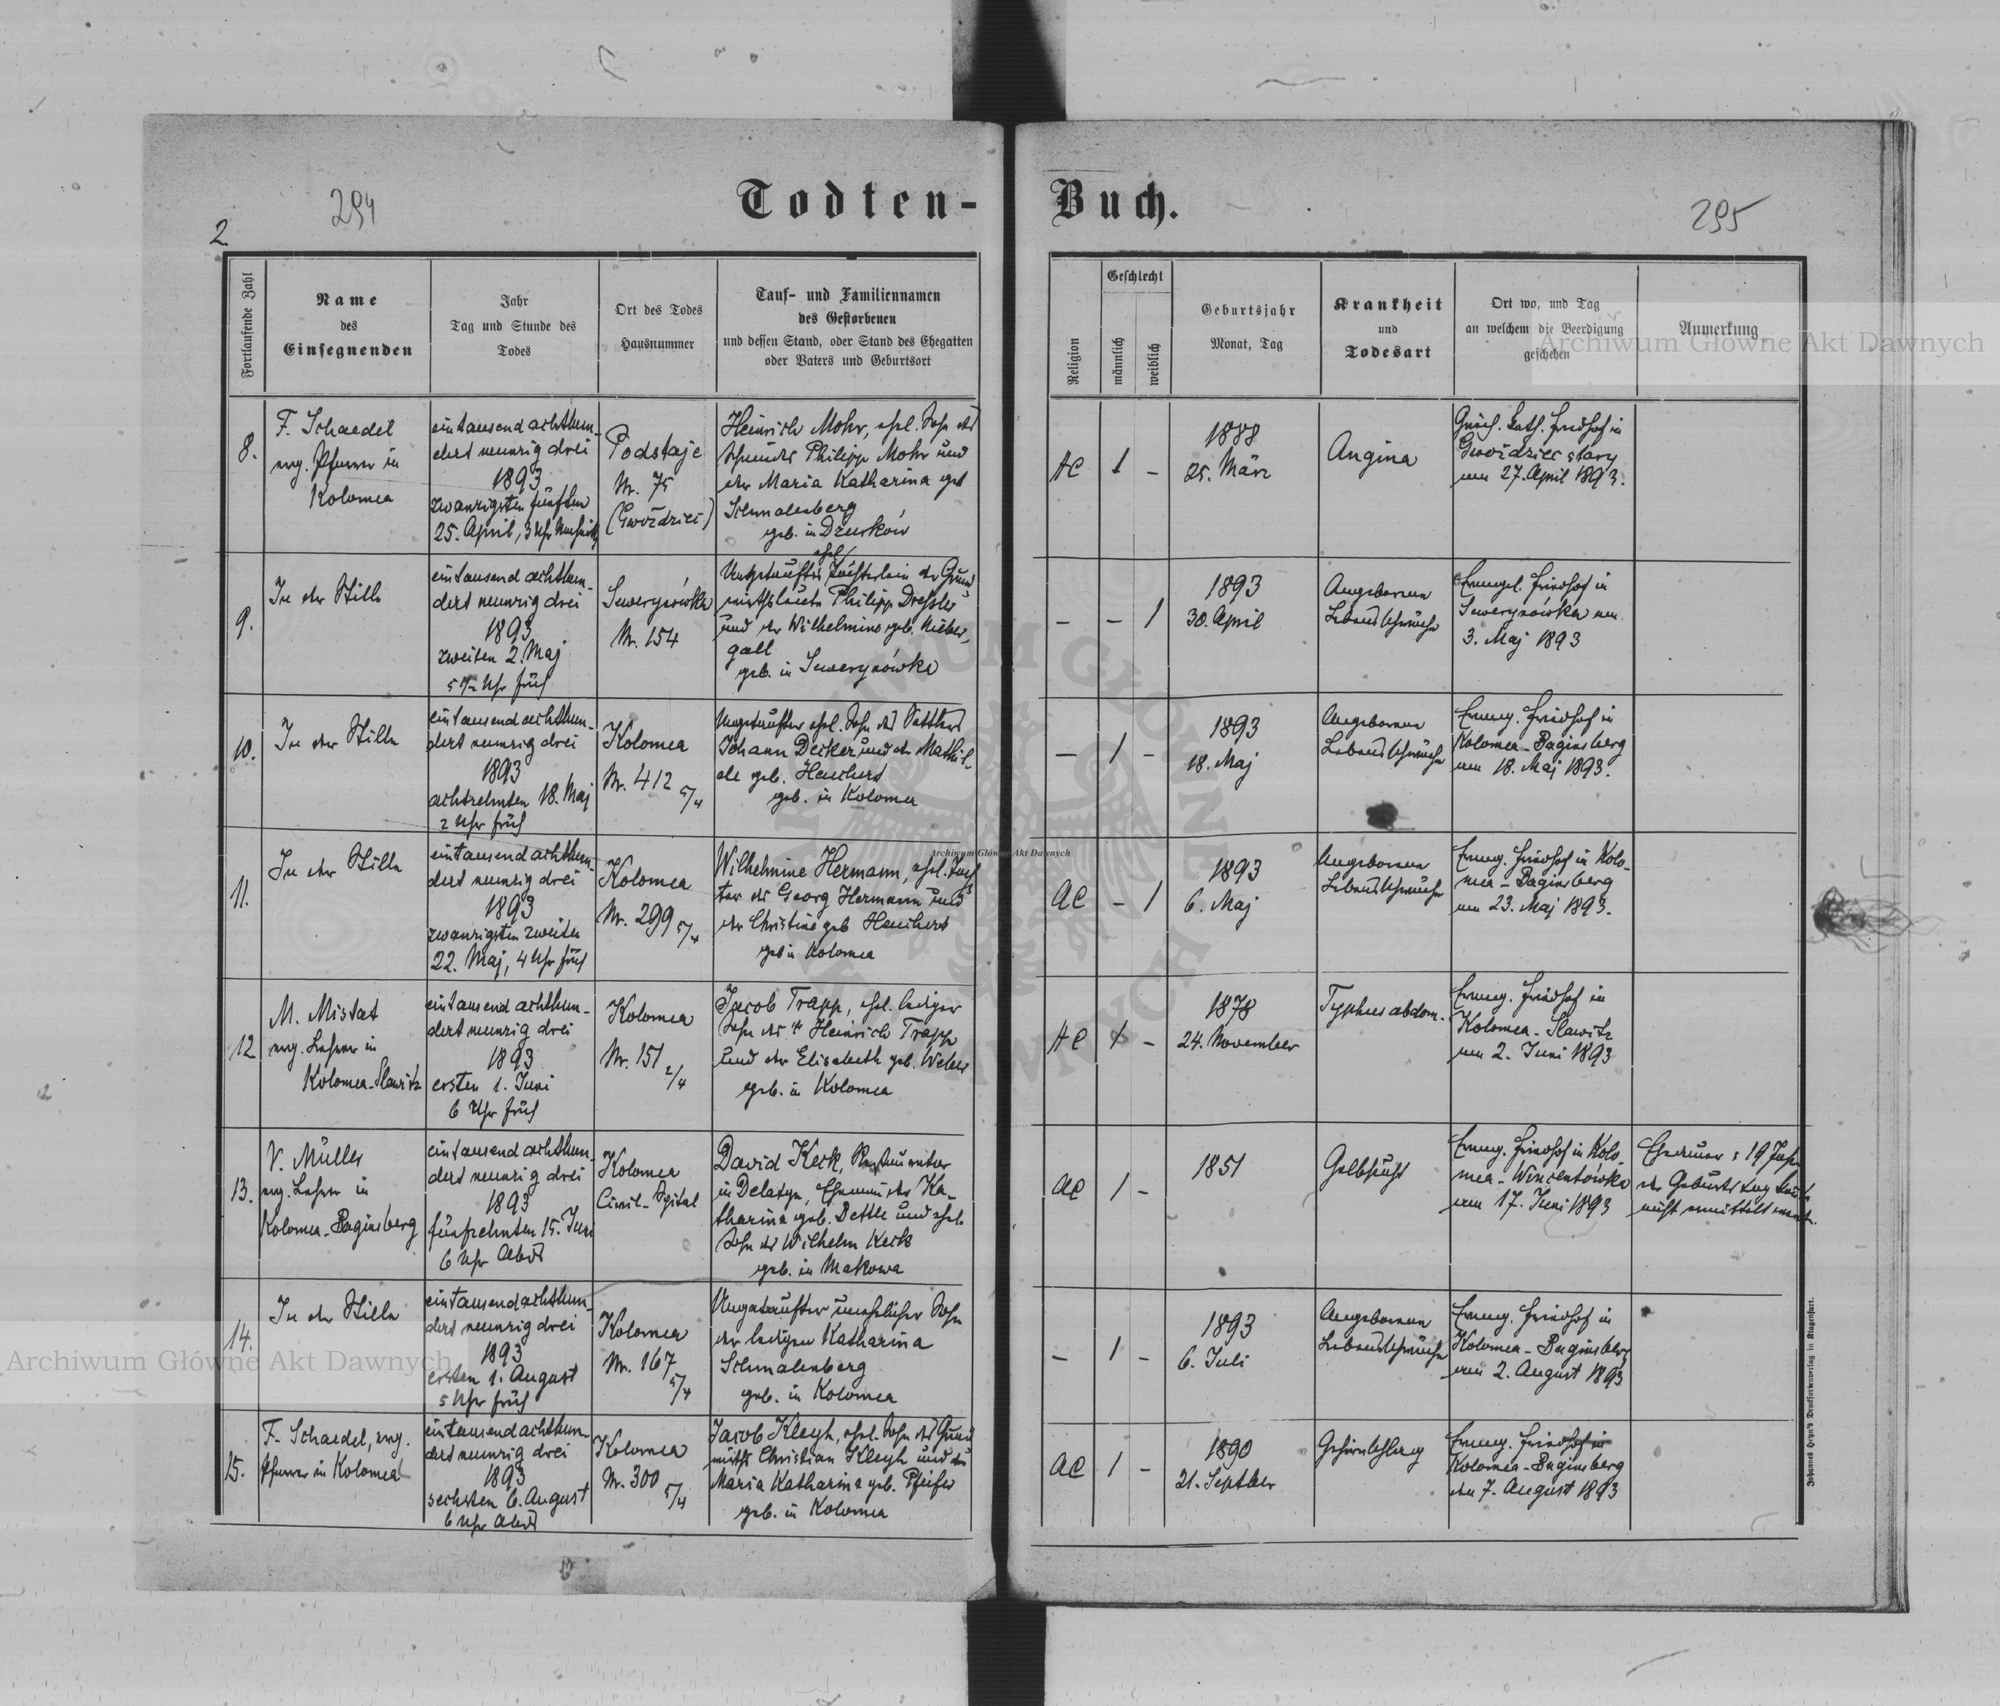 294
2
Todten-
Buch.
295
Fortlaufende Zahl
Name
des
Einsegnenden
Jahr
Tag und Stunde des
Todes
Ort des Todes
Hausnummer
Tauf- und Familiennamen
des Gestorbenen
und dessen Stand, oder Stand des Ehegatten
oder Vaters und Geburtsort
Religion
Geschlecht
männlich
weiblich
Geburtsjahr
Monat, Tag
Krankheit
und
Todesart
Ort wo, und Tag
an welchem die Beerdigung
geschehen
Anmerkung
8.
F. Schaedel
evg. Pfarrer in
Kolomea
eintausend achthun-
dert neunzig drei
1893
zwanzigsten fünften
25. April, 3 Uhr
Podstaje
Nr. 75
Heinrich Mohr, ehel. Sohn des
Philipp Mohr und
der Maria Katharina geb
Schmalenberg
geb. in Dzurków
AC
1
-
1888
25. März
Angina
Griech. kath. Friedhof in
Gwoździec stary
am 27. April 1893.
9.
In der Stille
eintausend achthun-
dert neunzig drei
1893
zweiten 2. Maj
5 1/2 Uhr früh
Sewerynówka
Nr. 154
ehel
Ungetauftes Töchterlein der Grund
wirthsleute Philipp Dressler
und der Wilhelmine geb. Nieber,
gall
geb. in Sewerynówka
-
-
1
1893
30. April
Angeborene
Lebensschwäche
Evangel. Friedhof in
Sewerynówka am
3. Maj 1893
10.
In der Stille
eintausend achthun-
dert neunzig drei
1893
achtzehnten 18. Maj
2 Uhr früh
Kolomea
Nr. 412 5/4
Ungetaufter ehel. Sohn des Sattlers
Johann Decker und der Mathil-
de geb. Heuchert
geb. in Kolomea
-
1
-
1893
18. Maj
Angeborene
Lebensschwäche
Evang. Friedhof in
Kolomea-Baginsberg
am 18. Maj 1893.
11.
In der Stille
eintausend achthun-
dert neunzig drei
1893
zwanzigsten zweiten
22. Maj, 4 Uhr früh
Kolomea
Nr. 299 5/4
Wilhelmine Hermann, ehel. Toch
ter des Georg Hermann und
der Christine geb Heuchert
geb in Kolomea
AC
-
1
1893
6. Maj
Angeborene
Lebensschwäche
Evang. Friedhof in Kolo-
mea-Baginsberg
am 23. Maj 1893.
12
M. Mistat
evg. Lehrer in
Kolomea-Slawitz
eintausend achthun-
dert neunzig drei
1893
ersten 1. Juni
6 Uhr früh
Kolomea
Nr. 151 2/4
Jacob Trapp, ehel. lediger
Sohn des † Heinrich Trapp
und der Elisabeth geb. Weber
geb. in Kolomea
AC
1
-
1878
24. November
Typhus abdom.
Evang. Friedhof in
Kolomea-Slawitz
am 2. Juni 1893
13.
V. Müller
evg. Lehrer in
Kolomea-Baginsberg
eintausend achthun-
dert neunzig drei
1893
fünfzehnten 15. Juni
6 Uhr Abds
Kolomea
Civil-Spital
David Keck, Restaurateur
in Delatyn, Ehemann der Ka-
tharina geb. Bettle und ehel.
Sohn des Wilhelm Keck
geb. in Makowa
AC
1
-
1851
Gelbsucht
Evang. Friedhof in Kolo-
mea-Wincentówka
am 17. Juni 1893
Ehedauer: 19 Jahre
der Geburtstag konnte
nicht ermittelt werden.
14.
In der Stille
eintausend achthun-
dert neunzig drei
1893
ersten 1. August
5 Uhr früh
Kolomea
Nr. 167 5/4
Ungetaufter unehelicher Sohn
der ledigen Katharina
Schmalenberg
geb. in Kolomea
-
1
-
1893
6. Juli
Angeborene
Lebensschwäche
Evang. Friedhof in
Kolomea-Baginsberg
am 2. August 1893
15.
F. Schaedel, evg.
Pfarrer in Kolomea
eintausend achthun-
dert neunzig drei
1893
sechsten 6. August
6 Uhr Abds
Kolomea
Nr. 300 5/4
Jacob Kleyh, ehel. Sohn des Grund
wirths Christian Kleyh und der
Maria Katharina geb. Pfeifer
geb. in Kolomea
AC
1
-
1890
21. Septber
Gehirnschlag
Evang. Friedhof in
Kolomea-Baginsberg
den 7. August 1893
Johannes Heyn's Drucksortenverlag in Klagenfurt.
Archiwum Główne Akt Dawnych
Archiwum Główne Akt Dawnych
Archiwum Główne Akt Dawnych